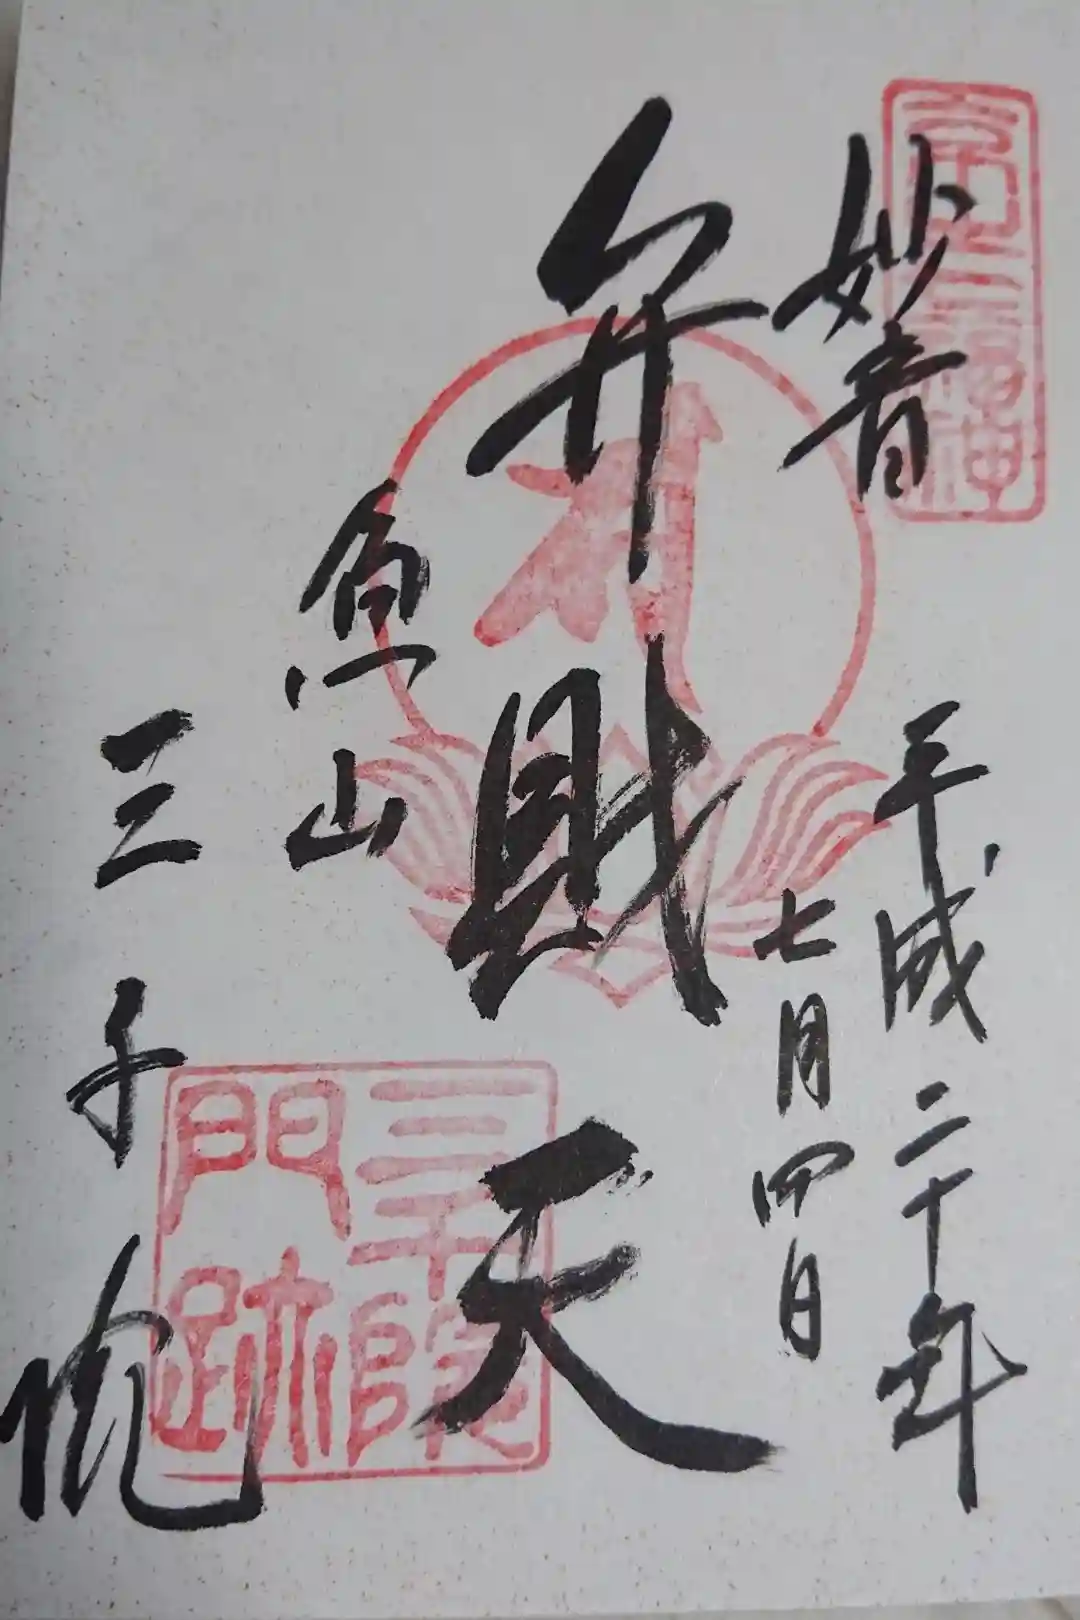 京之七福神
妙音
平成二十年
七月四日
弁財天
魚山
三千院
三千院
門跡